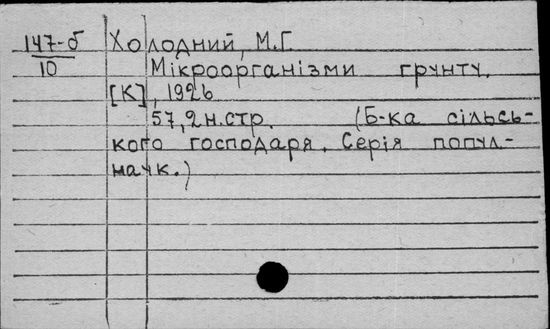 147-б Холодний, М.Г.
10 Мікроорганізми грунту.
[К], 1926
57, 2 н.стр. (Б-ка сільсь-
кого господаря. Серія попул-
наук.)